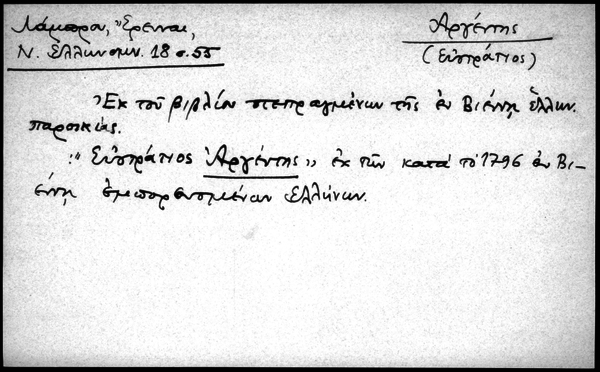 Λάμπρου, Ἔρευναι,
Ν. Ἑλληνομν. 18 σ. 55
Ἀργέντης
(Εὐστράτιος)
Ἐκ τοῦ βιβλίου πεπραγμένων τῆς ἐν Βιέννῃ ἑλλην.
παροικίας.
: "Εὐστράτιος Ἀργέντης" ἐκ τῶν κατὰ τὸ 1796 ἐν Βι-
έννῃ ἐμπορευομένων Ἑλλήνων.